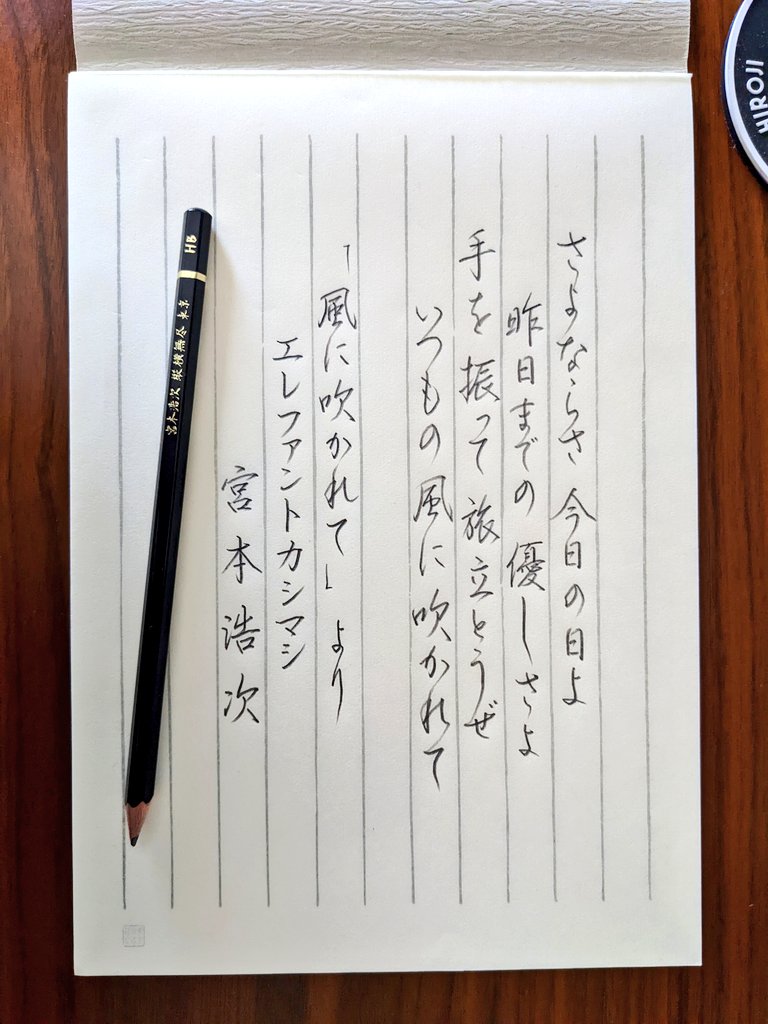 さよならさ 今日の日よ
昨日までの優しさよ
手を振って旅立とうぜ
いつもの風に吹かれて
「風に吹かれて」より
エレファントカシマシ
宮本浩次
HB
宮本浩次 縦横無尽 東京
HIROJI